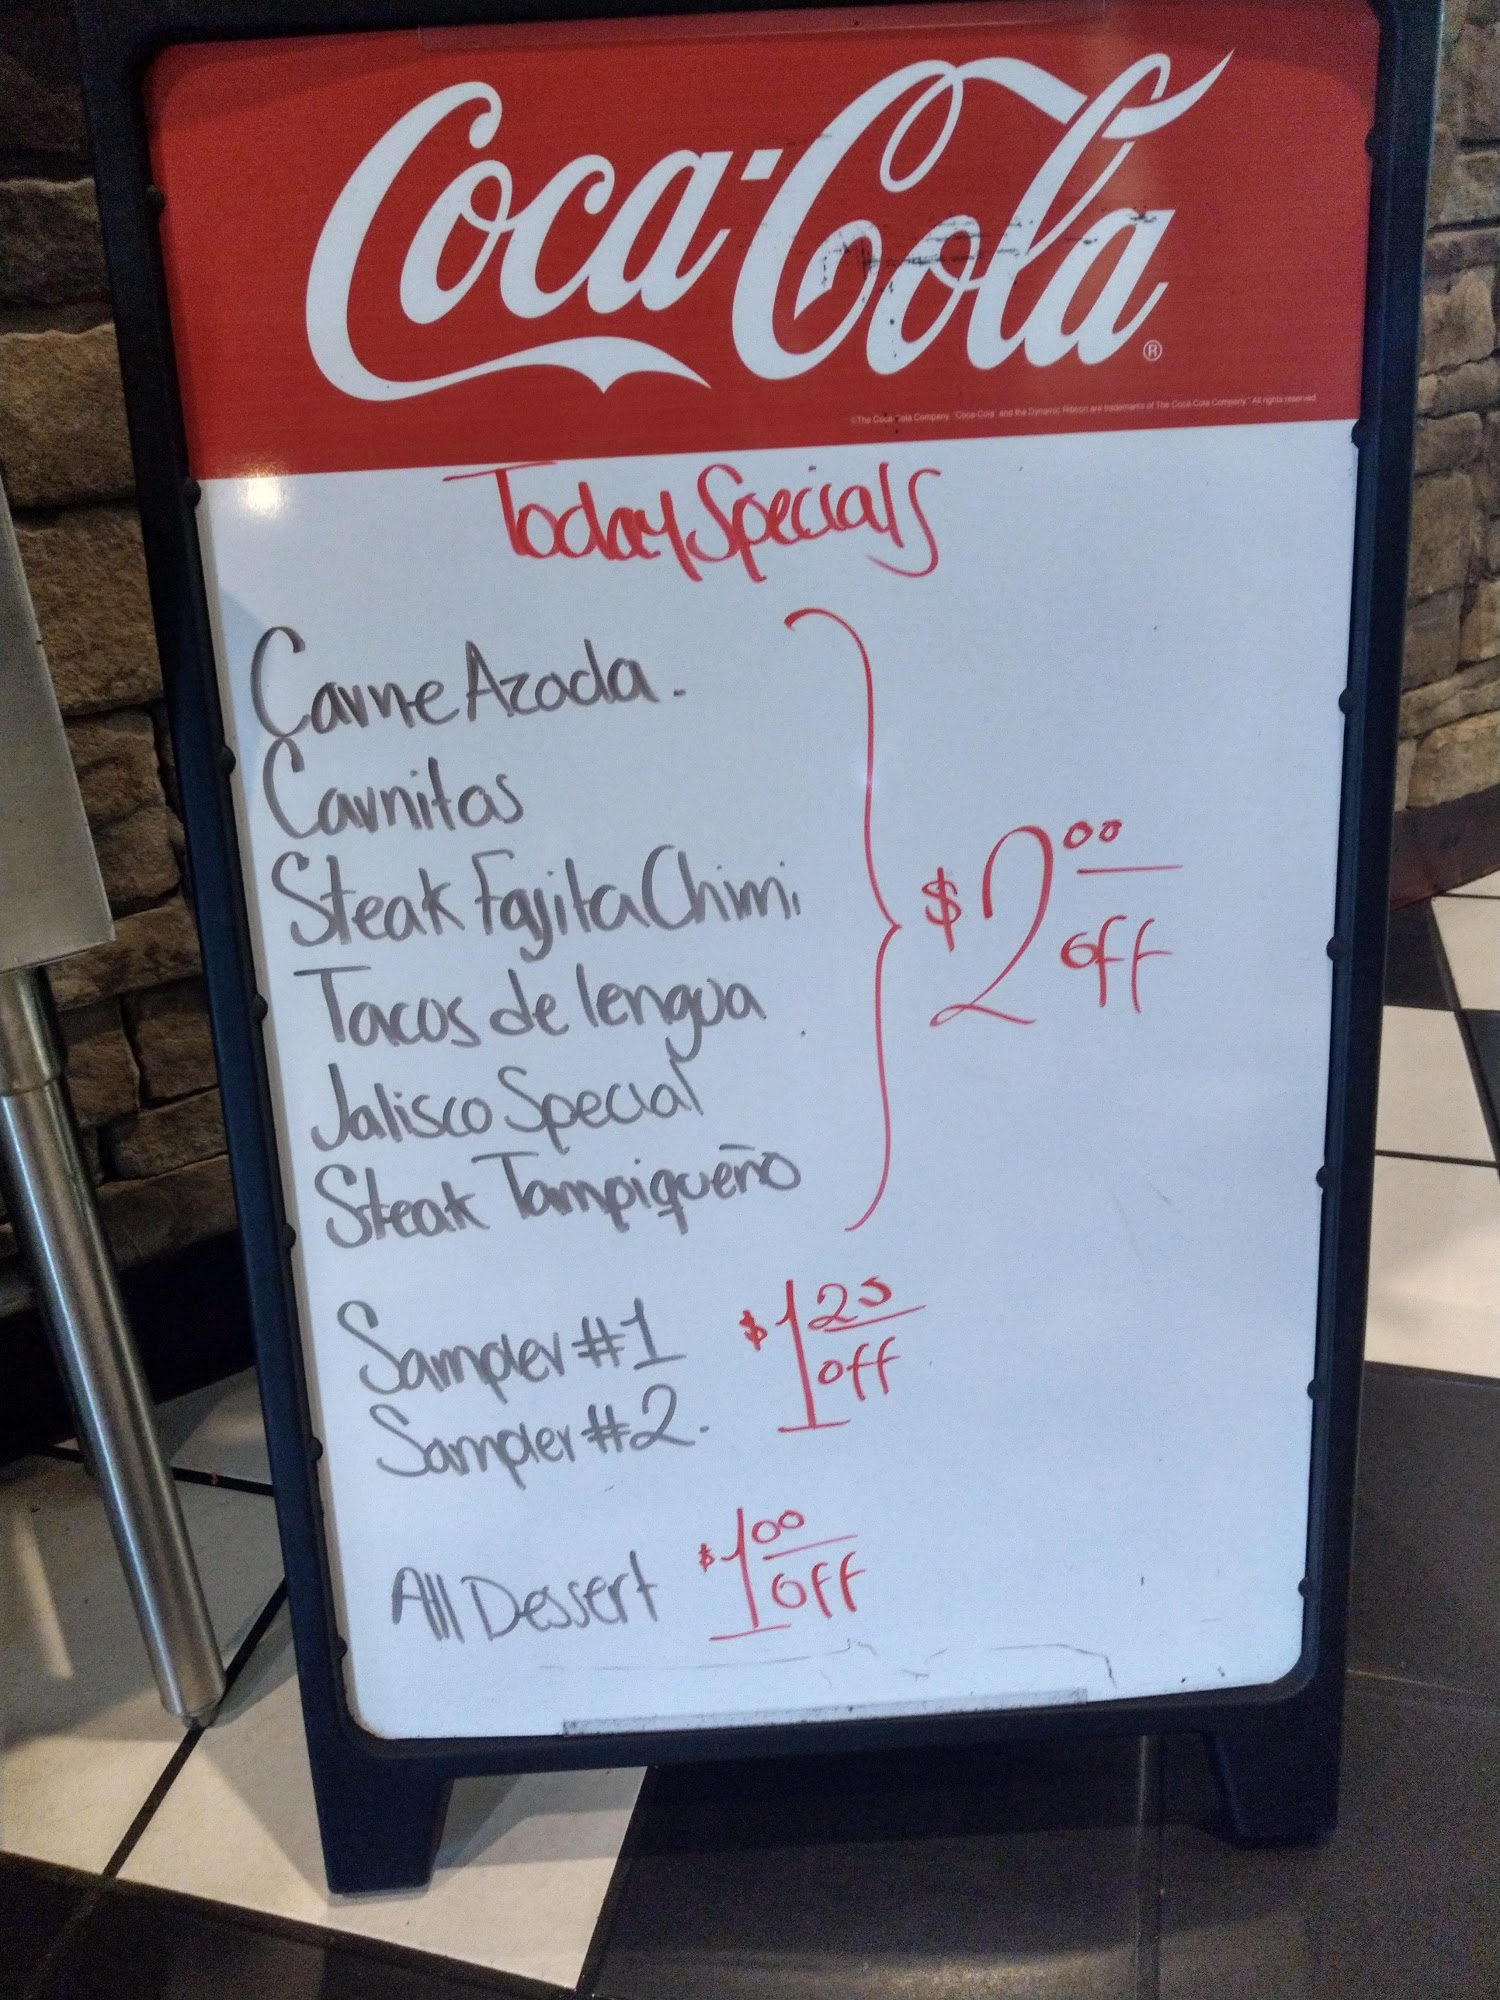 Coca-Cola®
©The Coca-Cola Company. "Coca-Cola" and the Dynamic Ribbon are trademarks of The Coca-Cola Company. All rights reserved.
Today Specials
Carne Azada.
Carnitas
Steak Fajita Chimi
Tacos de lengua
Jalisco Special
Steak Tampiqueño
$2 00 off
Sampler #1
Sampler #2.
$1 25 off
All Dessert $1 00 off